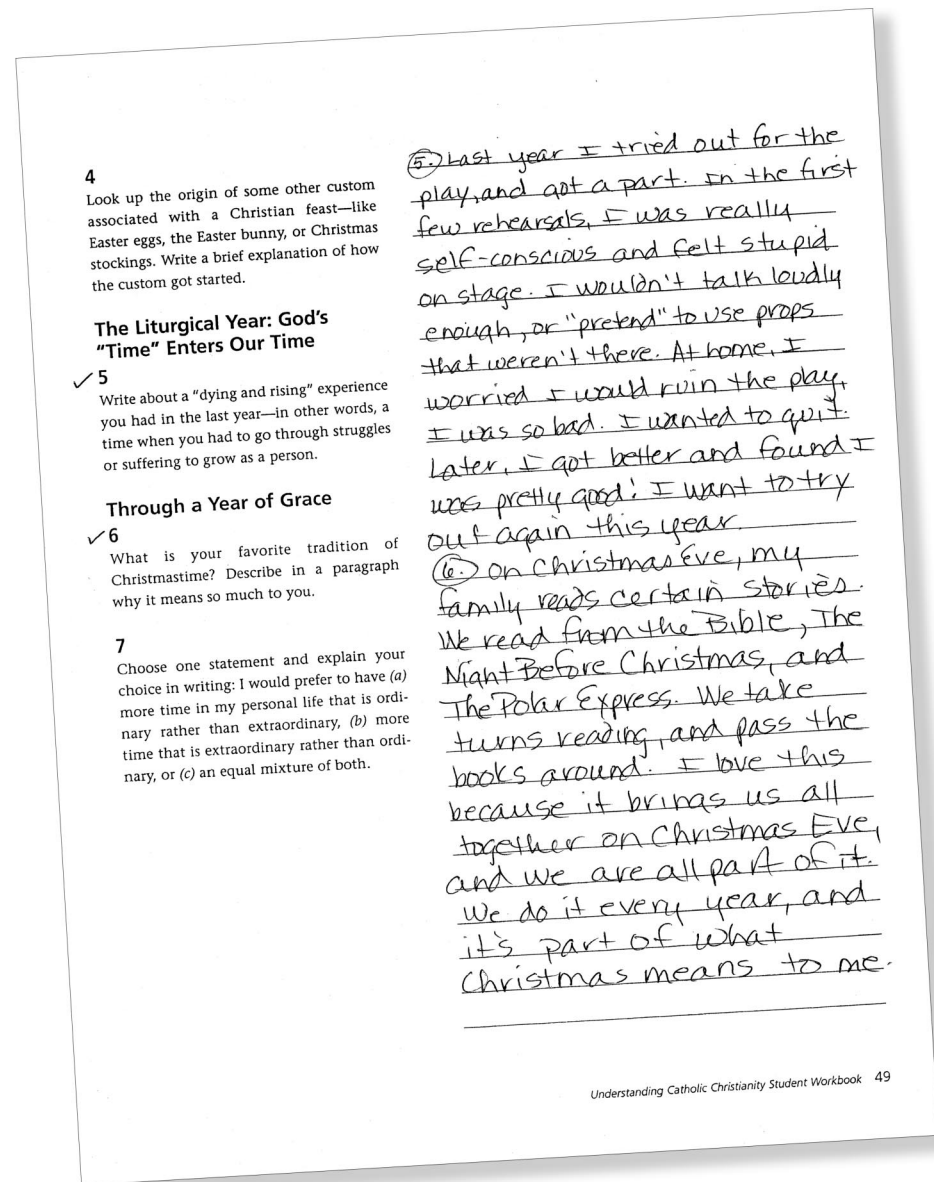 4
Look up the origin of some other custom
associated with a Christian feast—like
Easter eggs, the Easter bunny, or Christmas
stockings. Write a brief explanation of how
the custom got started.
The Liturgical Year: God's
"Time" Enters Our Time
✓ 5
Write about a "dying and rising" experience
you had in the last year—in other words, a
time when you had to go through struggles
or suffering to grow as a person.
Through a Year of Grace
✓ 6
What is your favorite tradition of
Christmastime? Describe in a paragraph
why it means so much to you.
7
Choose one statement and explain your
choice in writing: I would prefer to have (a)
more time in my personal life that is ordi-
nary rather than extraordinary, (b) more
time that is extraordinary rather than ordi-
nary, or (c) an equal mixture of both.
5. Last year I tried out for the
play, and got a part. In the first
few rehearsals, I was really
self-conscious and felt stupid
on stage. I wouldn't talk loudly
enough, or "pretend" to use props
that weren't there. At home, I
worried I would ruin the play,
I was so bad. I wanted to quit.
Later, I got better and found I
was pretty good! I want to try
out again this year.
6. On Christmas Eve, my
family reads certain stories.
We read from the Bible, The
Night Before Christmas, and
The Polar Express. We take
turns reading, and pass the
books around. I love this
because it brings us all
together on Christmas Eve,
and we are all part of it.
We do it every year, and
it's part of what
Christmas means to me.
Understanding Catholic Christianity Student Workbook 49